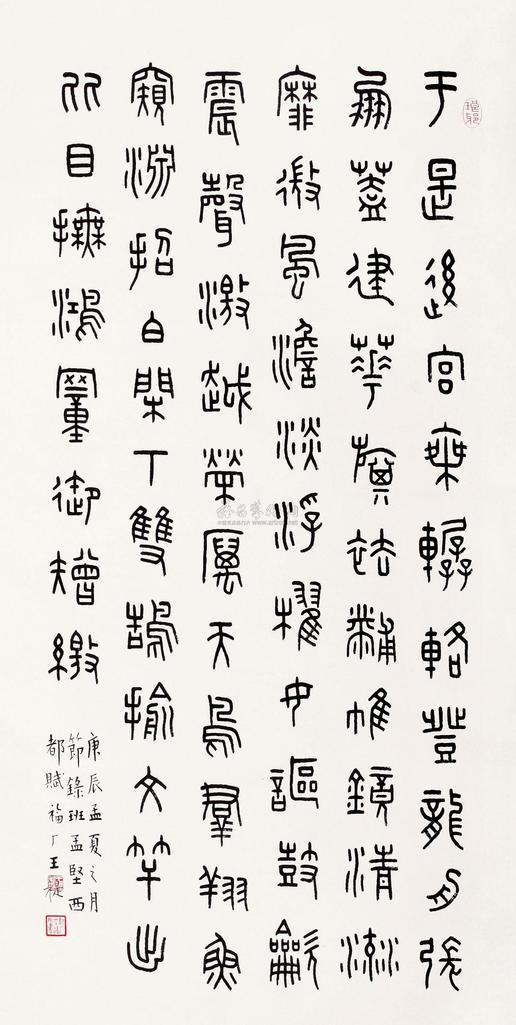 于是後宮乘轏輅登龍舟張
鳳蓋建華旗袪黼帷鏡清流
靡微風澹淡浮櫂女謳鼓龡
震聲激越榮厲天鳥群翔魚
窺淵招白閑下雙鵠揄文竿出
比目撫鴻罿御矰繳
庚辰孟夏之月
節錄班孟堅西
都賦 福厂王禔